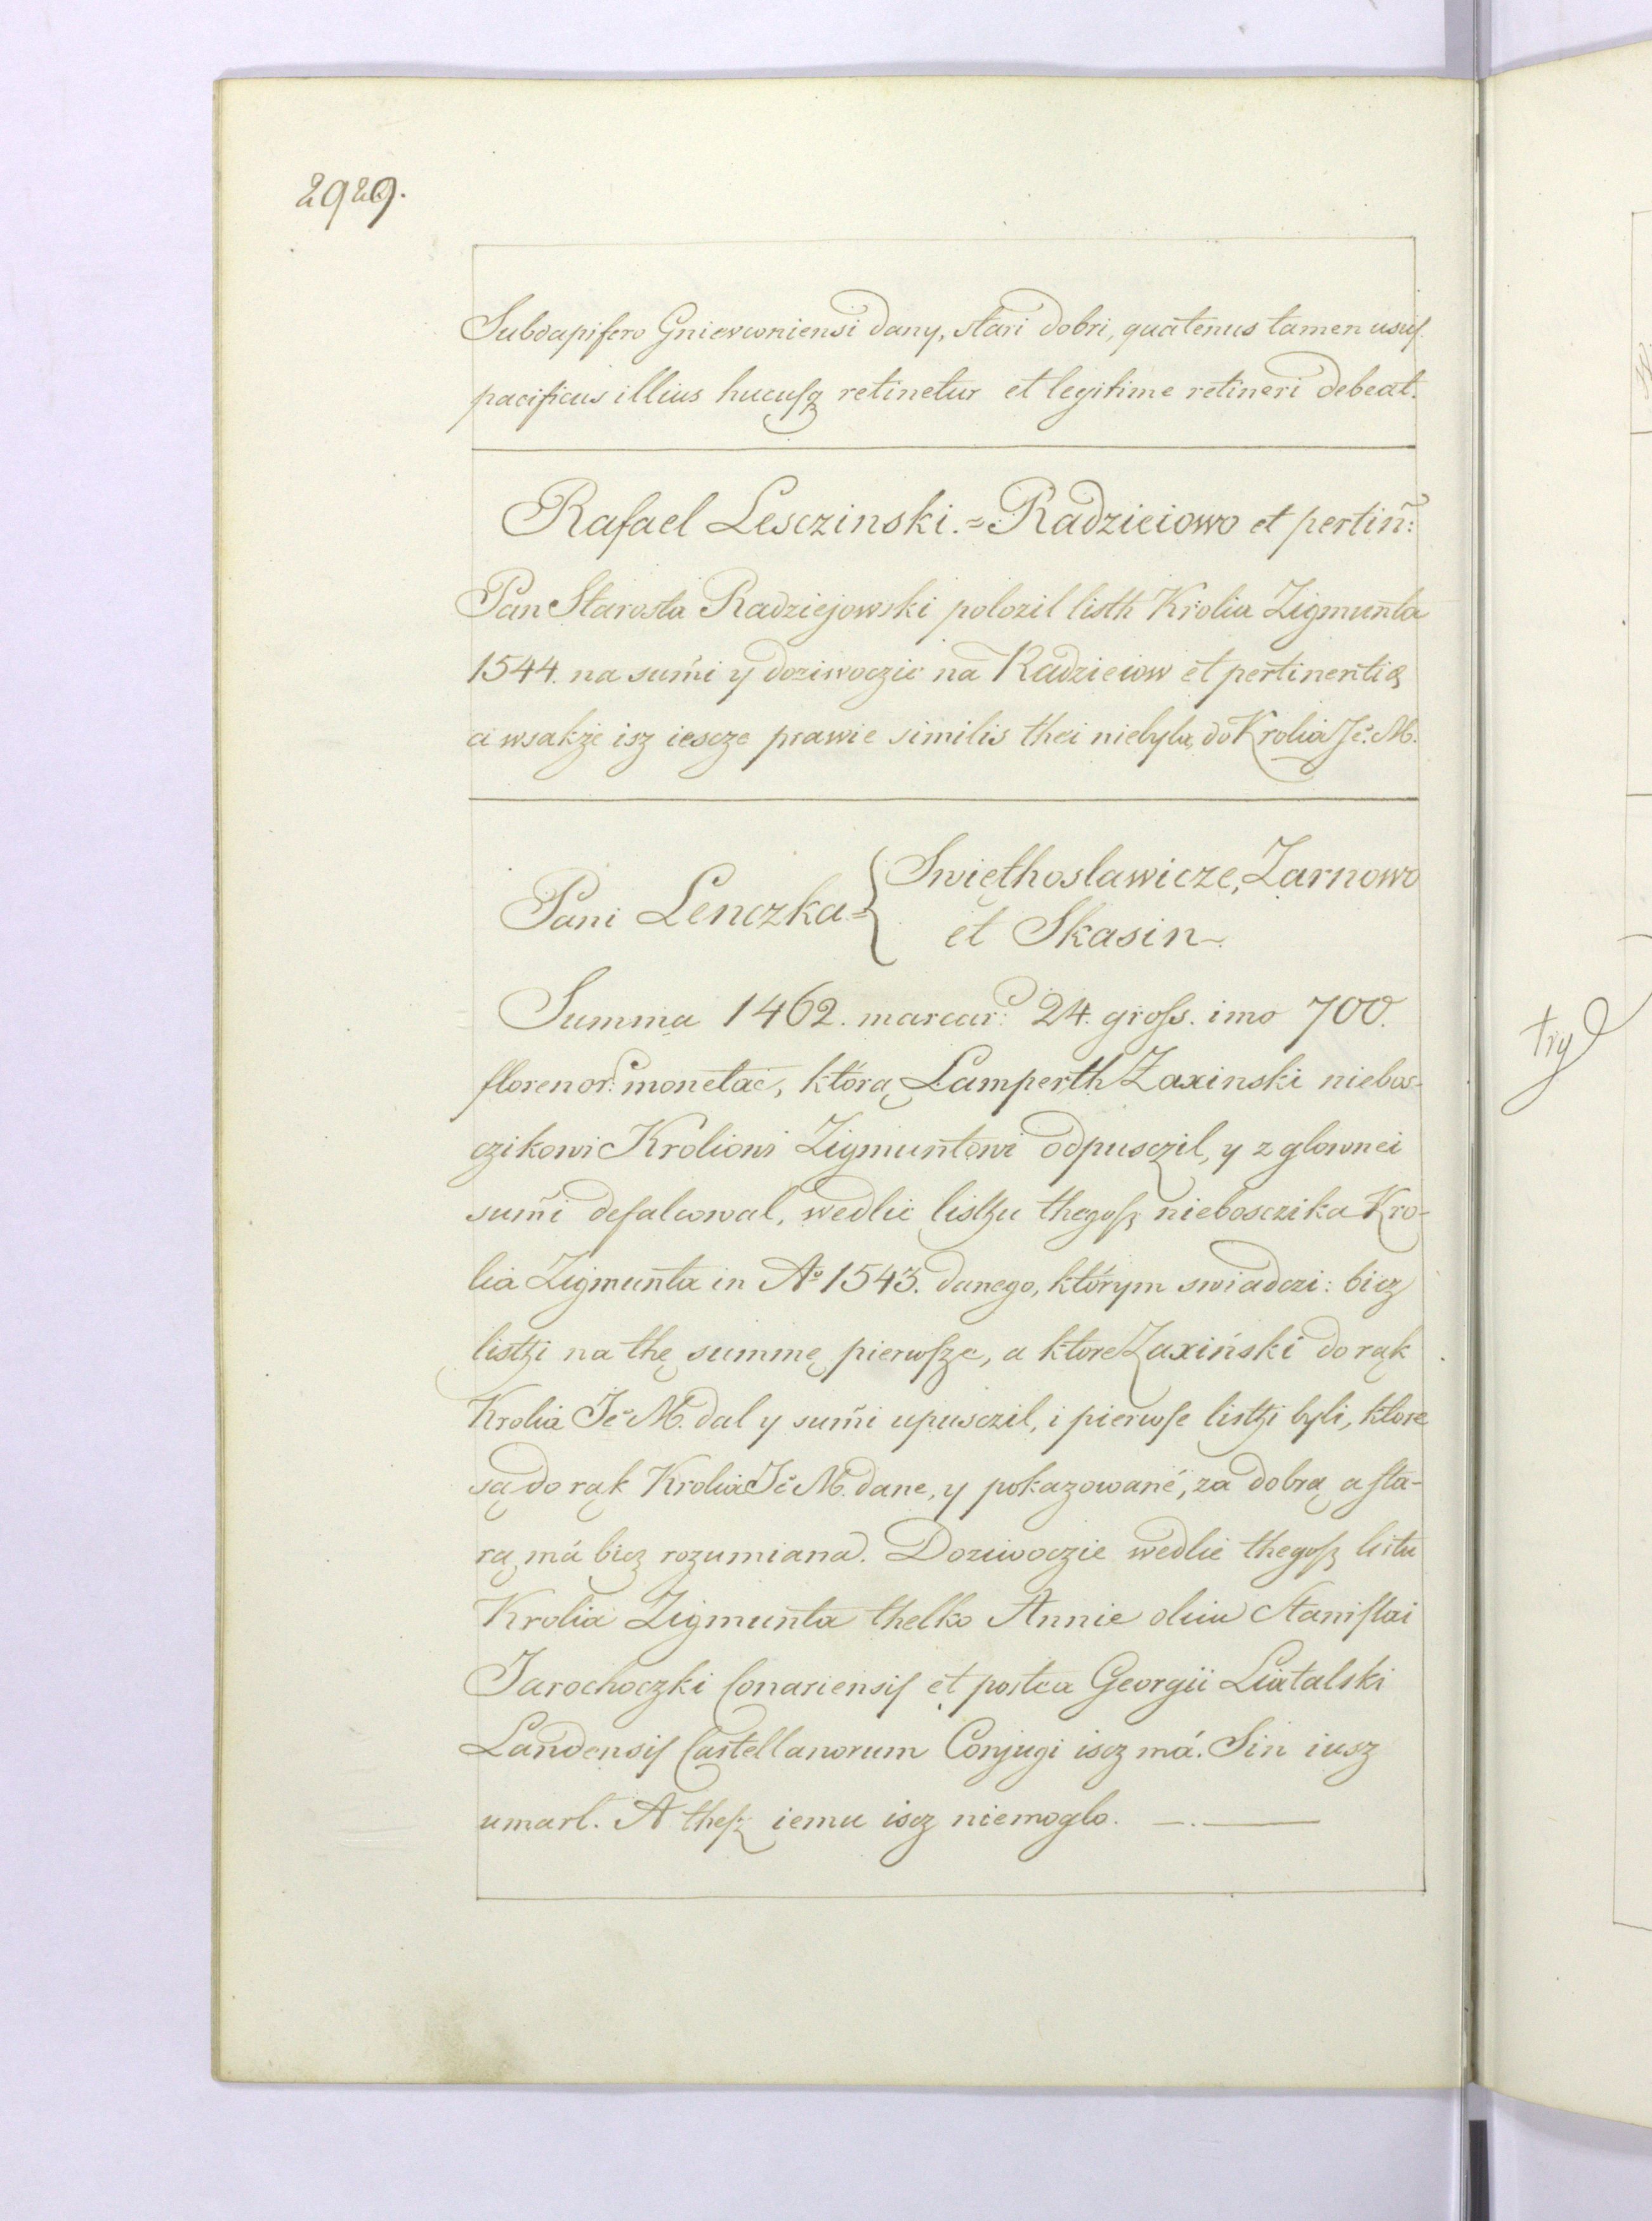 2929.
Subdapifero Gniewoniensi dany, stari dobri, quatenus tamen usuſ
pacificus illius hucuſq retinetur et legitime retineri debeat.
Rafael Lesczinski.=Radzieiowo et pertin̄:
Pan Starosta Radziejowski polozil listh Krolia Zigmunta
1544. na sum̄i y doziwoczie na Radzieiow et pertinentiȩ
a wsakże isz iescze prawie similis thei niebyla, do Krolia Je͠. M.
Pani Lenczka = { Swięthoslawicze, Zarnowo
et Skasin
Summa 1462. marcar: 24. groſs. imo 700.
florenor: monetae, którą Lamperth Zaxinski niebos-
czikowi Kroliowi Zigmuntowi odpusczil, y z glownei
sum̄i defalcowal, wedlie listhu thegoſz niebosczika Kro-
lia Zigmunta in Aº 1543. danego, którym swiadczi: bicz
listhi na thę summę pierwſze, a ktore Zaxiński do rąk
Krolia Je͠ M. dal y sum̄i upusczil, i pierwſe listhi byli, ktore
są do rąk Krolia Je͠ M. dane, y pokazowané, za dobrą a sta-
rą má bicz rozumiana. Doziwoczie wedlie thegoſz listu
Krolia Zigmunta thelko Annie olim Staniſlai
Jarochoczki Conariensiſ et postea Georgii Liatalski
Landensiſ Castellanorum Conjugi iscz má. Sin iusz
umarl. A theſz iemu iscz niemoglo. —.——
try